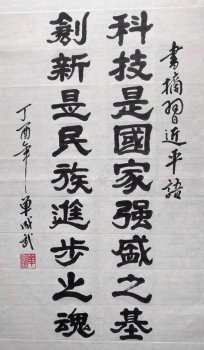 書摘習近平語
科技是國家强盛之基
創新昰民族進步之魂
丁酉年 單成武